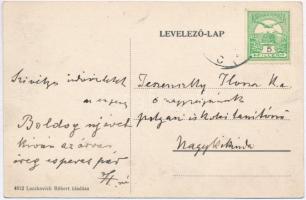 LEVELEZŐ-LAP
5
Szívélyes üdvözletet
az egész
Boldog újévet
kíván az
öreg esperes pár
Tereuszky Ilona k.a.
ő nagyságának
polgári iskolai tanítónő
Nagykikinda
4812 Laczkovich Róbert kiadása